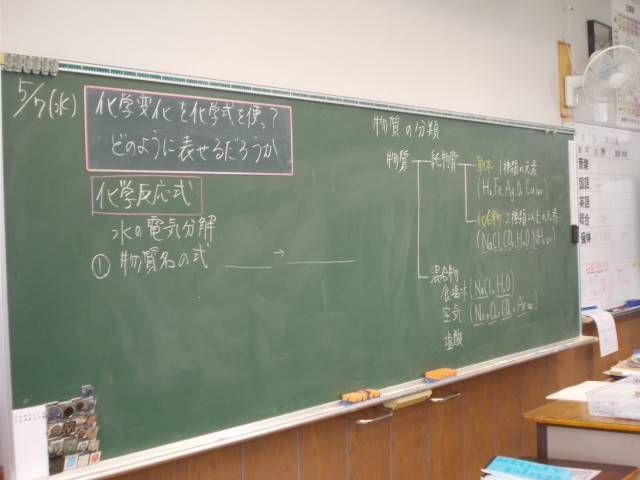 5/7(水)
化学変化を化学式を使って
どのように表せるだろうか
化学反応式
水の電気分解
① 物質名の式 ＿＿ → ＿＿＿
物質の分類
物質
純物質
単体 1種類の元素
化合物 2種類以上の元素
混合物
食塩水 (NaCl, H₂O)
空気
塩酸
音楽
国語
英語
総合